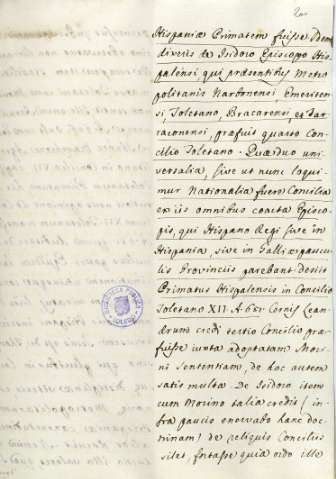 Hispaniæ Primatem fuisse
diximus de Isidoro Episcopo His-
palensi, qui præsentibus Metro
politanis Narbonensi, Emeriten-
si, Toletano, Bracarensi, et Tar-
raconensi, præfuit quarto Con-
cilio Toletano. Quæ duo uni-
versalia, sive ut nunc loqui-
mur Nationalia fuere Concilia
ex iis omnibus coacta Episco-
pis, qui Hispano Regi sive in
Hispania, sive in Galliæ paucu-
lis Provinciis parebant
Primatus Hispalensis in Concilio
Toletano XII. A 681 Lean-
drum credi tertio Concilio præ-
fuisse iuxta adoptatam Mori-
ni Sententiam, de hoc autem
satis multa. De Isidoro item
cum Morino talia credis (in-
fra paucis enervabo hanc doc-
trinam) de reliquis Conciliis
silet, fortasse quia eido ille